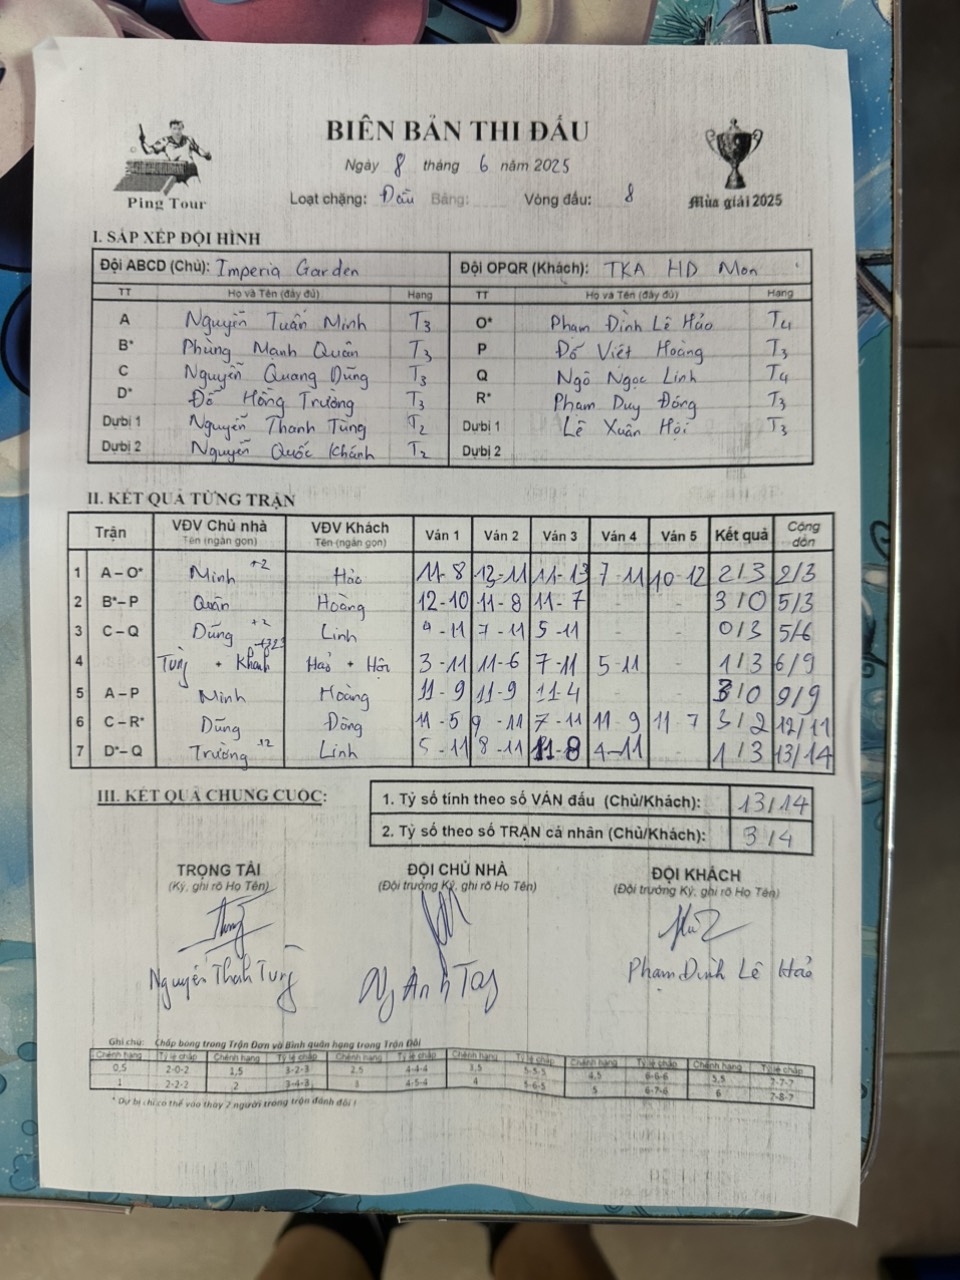 BIÊN BẢN THI ĐẤU
Ngày 8 tháng 6 năm 2025
Ping Tour
Loạt chặng: Đấu Bảng: Vòng đấu: 8
Mùa giải 2025
I. SẮP XẾP ĐỘI HÌNH
Đội ABCD (Chủ): Imperia Garden Đội OPQR (Khách): TKA HD Mon
TT Họ và Tên (đầy đủ) Hạng TT Họ và Tên (đầy đủ) Hạng
A Nguyễn Tuấn Minh T3 O* Phạm Đình Lê Hảo T4
B* Phùng Mạnh Quân T3 P Đỗ Viết Hoàng T3
C Nguyễn Quang Dũng T3 Q Ngô Ngọc Linh T4
D* Đỗ Hồng Trường T3 R* Phạm Duy Đông T3
Dự bị 1 Nguyễn Thanh Tùng T2 Dự bị 1 Lê Xuân Hội T3
Dự bị 2 Nguyễn Quốc Khánh T2 Dự bị 2
II. KẾT QUẢ TỪNG TRẬN
Trận VĐV Chủ nhà Tên (ngắn gọn) VĐV Khách Tên (ngắn gọn) Ván 1 Ván 2 Ván 3 Ván 4 Ván 5 Kết quả Cộng dồn
1 A – O* Minh +2 Hảo 11-8 13-11 11-13 7-11 10-12 2/3 2/3
2 B* – P Quân Hoàng 12-10 11-8 11-7 - - 3/0 5/3
3 C – Q Dũng +2 Linh 9-11 7-11 5-11 - - 0/3 5/6
4 Tùng + Khánh +323 Hảo + Hội 3-11 11-6 7-11 5-11 - 1/3 6/9
5 A – P Minh Hoàng 11-9 11-9 11-4 - - 3/0 9/9
6 C – R* Dũng Đông 11-5 9-11 7-11 11-9 11-7 3/2 12/11
7 D* – Q Trường +2 Linh 5-11 8-11 11-8 4-11 - 1/3 13/14
III. KẾT QUẢ CHUNG CUỘC:
1. Tỷ số tính theo số VÁN đấu (Chủ/Khách): 13/14
2. Tỷ số theo số TRẬN cá nhân (Chủ/Khách): 3/4
TRỌNG TÀI ĐỘI CHỦ NHÀ ĐỘI KHÁCH
(Ký, ghi rõ Họ Tên) (Đội trưởng Ký, ghi rõ Họ Tên) (Đội trưởng Ký, ghi rõ Họ Tên)
Nguyễn Thanh Tùng Ng Anh Tay Phạm Đình Lê Hảo
Ghi chú: Chấp bóng trong Trận Đơn và Bình quân hạng trong Trận Đôi
Chênh hạng Tỷ lệ chấp Chênh hạng Tỷ lệ chấp Chênh hạng Tỷ lệ chấp Chênh hạng Tỷ lệ chấp Chênh hạng Tỷ lệ chấp Chênh hạng Tỷ lệ chấp
0,5 2-0-2 1,5 3-2-3 2,5 4-4-4 3,5 5-5-5 4,5 6-6-6 5,5 7-7-7
1 2-2-2 2 3-4-3 3 4-5-4 4 5-6-5 5 6-7-6 6 7-8-7
* Dự bị chỉ có thể vào thay 2 người trong trận đánh đôi !